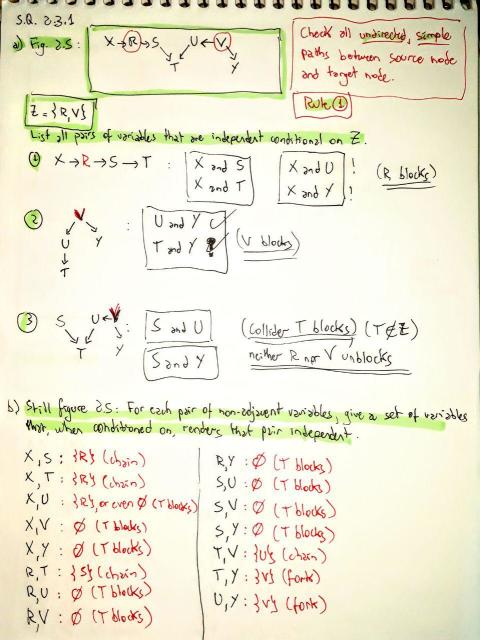 S.Q. 2.3.1
a) Fig. 2.5: X → R → S U ← V
T Y
Check all undirected, simple
paths between source node
and target node.
Rule ①
Z = {R,V}
List all pairs of variables that are independent conditional on Z.
① X → R → S → T : X and S X and U ! (R blocks)
X and T X and Y !
② V : U and Y (V blocks)
U Y T and Y
T
③ S U V : S and U (Collider T blocks) (T∉Z)
T Y S and Y neither R nor V unblocks
b) Still figure 2.5: For each pair of non-adjacent variables, give a set of variables
that, when conditioned on, renders that pair independent.
X, S : {R} (chain)
X, T : {R} (chain)
X, U : {R}, or even ∅ (T blocks)
X, V : ∅ (T blocks)
X, Y : ∅ (T blocks)
R, T : {S} (chain)
R, U : ∅ (T blocks)
R, V : ∅ (T blocks)
R, Y : ∅ (T blocks)
S, U : ∅ (T blocks)
S, V : ∅ (T blocks)
S, Y : ∅ (T blocks)
T, V : {U} (chain)
T, Y : {V} (fork)
U, Y : {V} (fork)